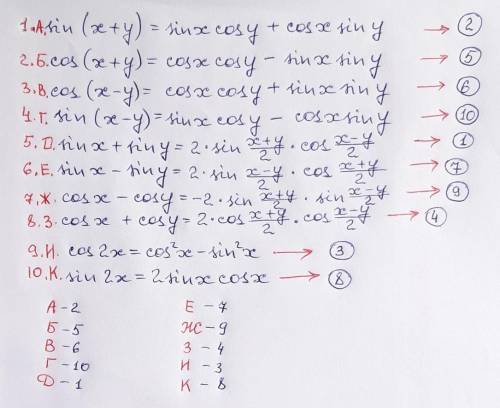 1.А. sin (x+y) = sinx cosy + cosx siny → 2
2.Б. cos (x+y) = cosx cosy − sinx siny → 5
3.В. cos (x−y) = cosx cosy + sinx siny → 6
4.Г. sin (x−y) = sinx cosy − cosx siny → 10
5.Д. sinx + siny = 2·sin (x+y)/2 · cos (x−y)/2 → 1
6.Е. sinx − siny = 2·sin (x−y)/2 · cos (x+y)/2 → 7
7.Ж. cosx − cosy = −2·sin (x+y)/2 · sin (x−y)/2 → 9
8.З. cosx + cosy = 2·cos (x+y)/2 · cos (x−y)/2 → 4
9.И. cos 2x = cos²x − sin²x → 3
10.К. sin 2x = 2sinx cosx → 8
А − 2
Б − 5
В − 6
Г − 10
Д − 1
Е − 7
Ж − 9
З − 4
И − 3
К − 8